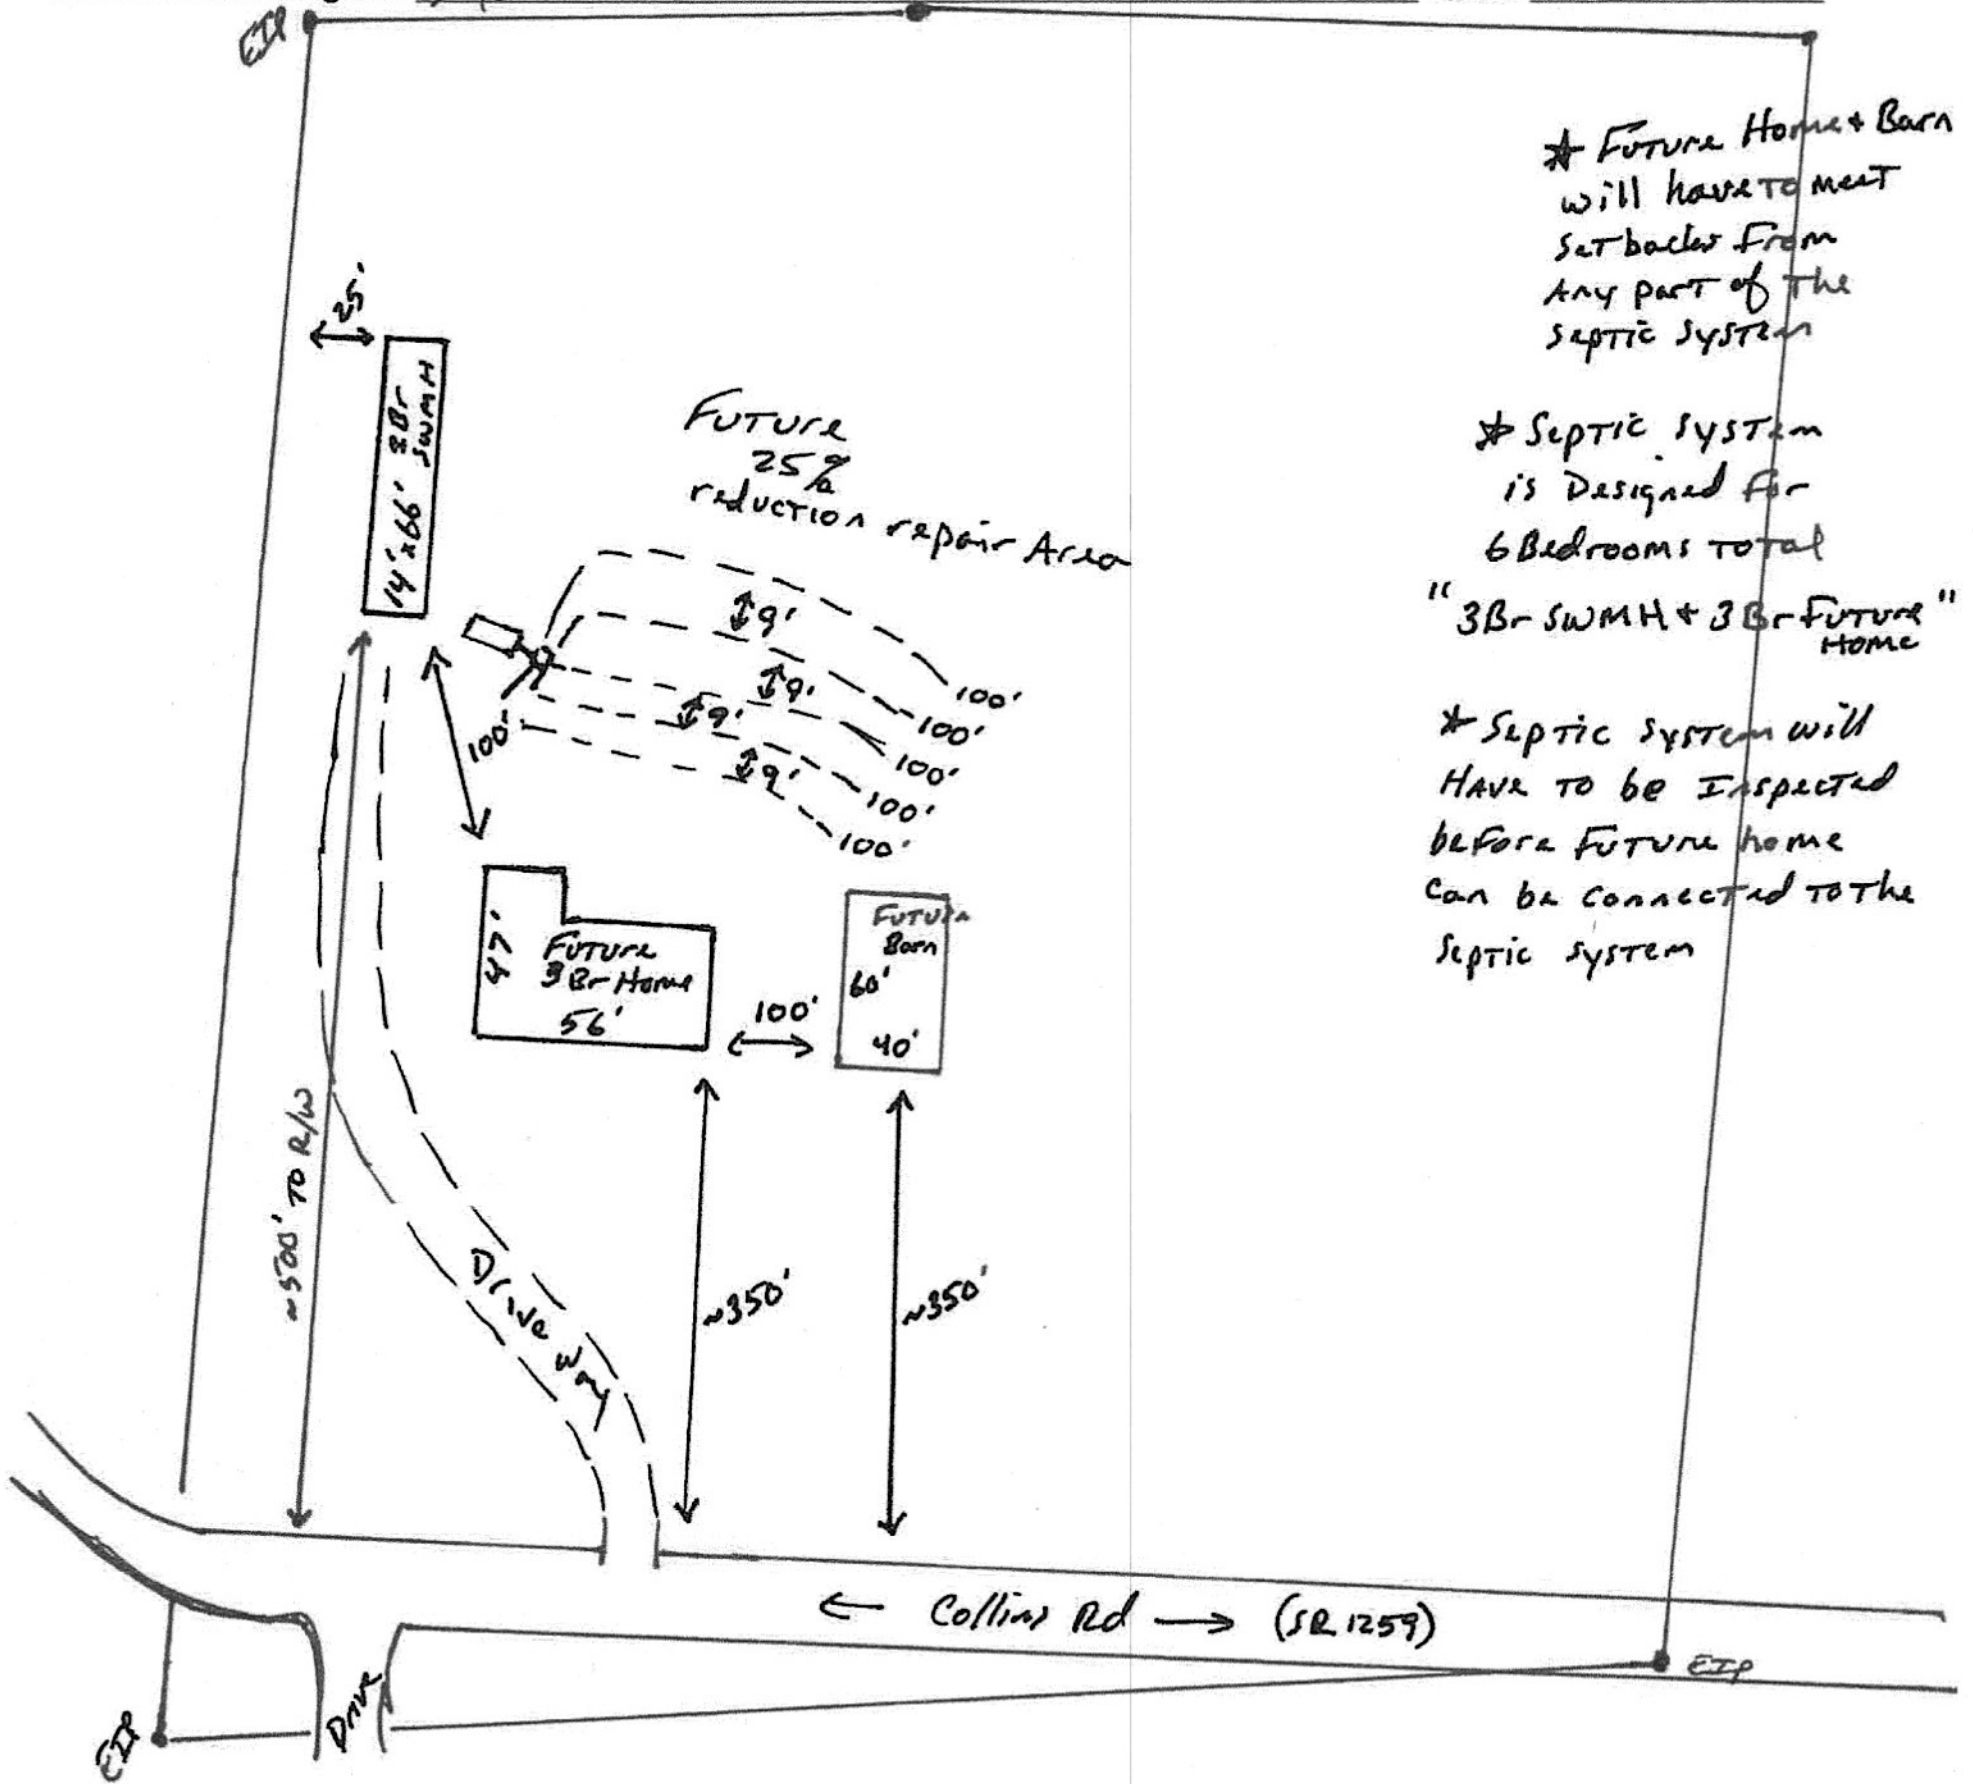 EIP
25'
14' x 66' 3Br
SWMH
Future
25%
reduction repair Area
9'
9'
9'
9'
100'
100'
100'
100'
100'
100'
47'
Future
3Br Home
56'
100'
Future
Barn
60'
40'
~500' TO R/W
Drive way
~350'
~350'
* Future Home + Barn
will have to meet
setbacks from
Any part of the
septic system
* Septic system
is Designed for
6 Bedrooms Total
"3Br SWMH + 3Br Future"
Home
* Septic system will
HAVE TO be Inspected
before Future home
can be connected to the
septic system
← Collins Rd → (SR 1259)
EIP
Drive
EIP